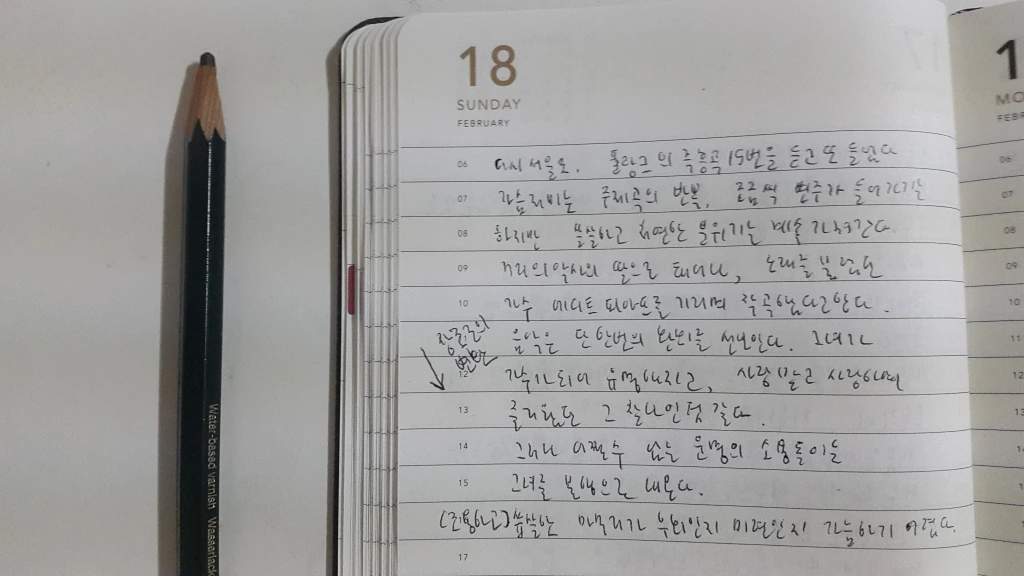 Water-based varnish Wasserlack
18
SUNDAY
FEBRUARY
06 다시 서울로. 풀랑크의 즉흥곡 15번을 듣고 또 들었다
07 주제곡의 반복, 조금씩 변주가 들어가기는
08 하지만 쓸쓸하고 분위기는 계속 가져간다.
09 거리의 악사의 딸으로 태어나, 노래를 불렀던
10 가수 에디트 피아프를 기리며 작곡했다고 한다.
장조로의
변환
11 음악은 또 한번의 변화를 선보인다. 그녀가
12 가수가 되어 유명해지고, 사랑받고 사랑하며
13 그 찰나인 것 같다.
14 그러나 어쩔 수 없는 운명의 소용돌이는
15 그녀를 불행으로 내몬다.
(조용하고) 쓸쓸한 마무리가 후회인지 미련인지 가늠하기 어렵다.
17
1
MO
FEBR
06
07
08
09
10
11
13
14
15